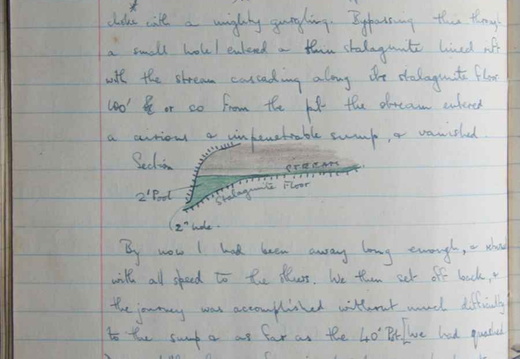 choke with a mighty gurgling. Bypassing this through
a small hole I entered a thin stalagmite lined rift
with the stream cascading along its stalagmite floor
100' or so from the pit the stream entered
a curious & impenetrable sump, & vanished.
Section
STREAM
2' Pool
Stalagmite Floor
2" hole.
By now I had been away long enough, &
with all speed to the others. We then set off back, &
the journey was accomplished without much difficulty
to the sump & as far as the 40' Pit. [We had